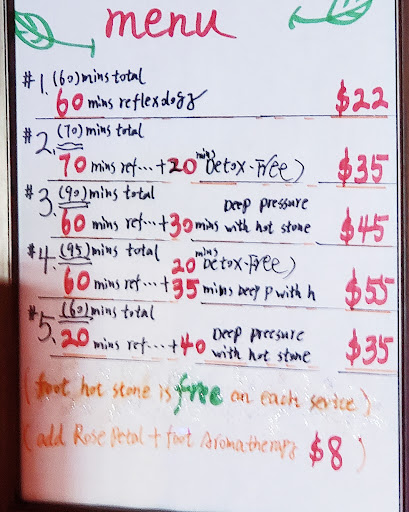 menu
#1. (60) mins total
60 mins reflexology $22
#2. (70) mins total
70 mins ref...+20 mins Detox.Free) $35
#3. (90) mins total Deep pressure
60 mins ref...+30 mins with hot stone $45
#4. (95) mins total 20 mins Detox.Free)
60 mins ref...+35 mins Deep P with h $55
#5. (60) mins total Deep precsure
20 mins ref...+40 with hot stone $35
(foot hot stone is free on each service)
(add Rose Petal + foot Aromatherapy $8)